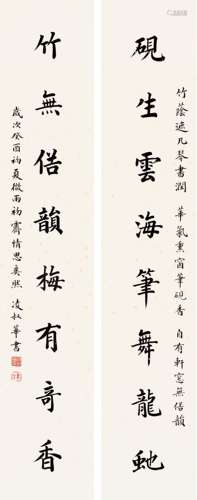 硯生雲海筆舞龍虵
竹無俗韻梅有奇香
竹蔭遮几琴書潤 華氣熏窗筆硯香 自有軒窓無俗韻
歲次癸酉初夏微雨初霽情思奐然 凌叔華書